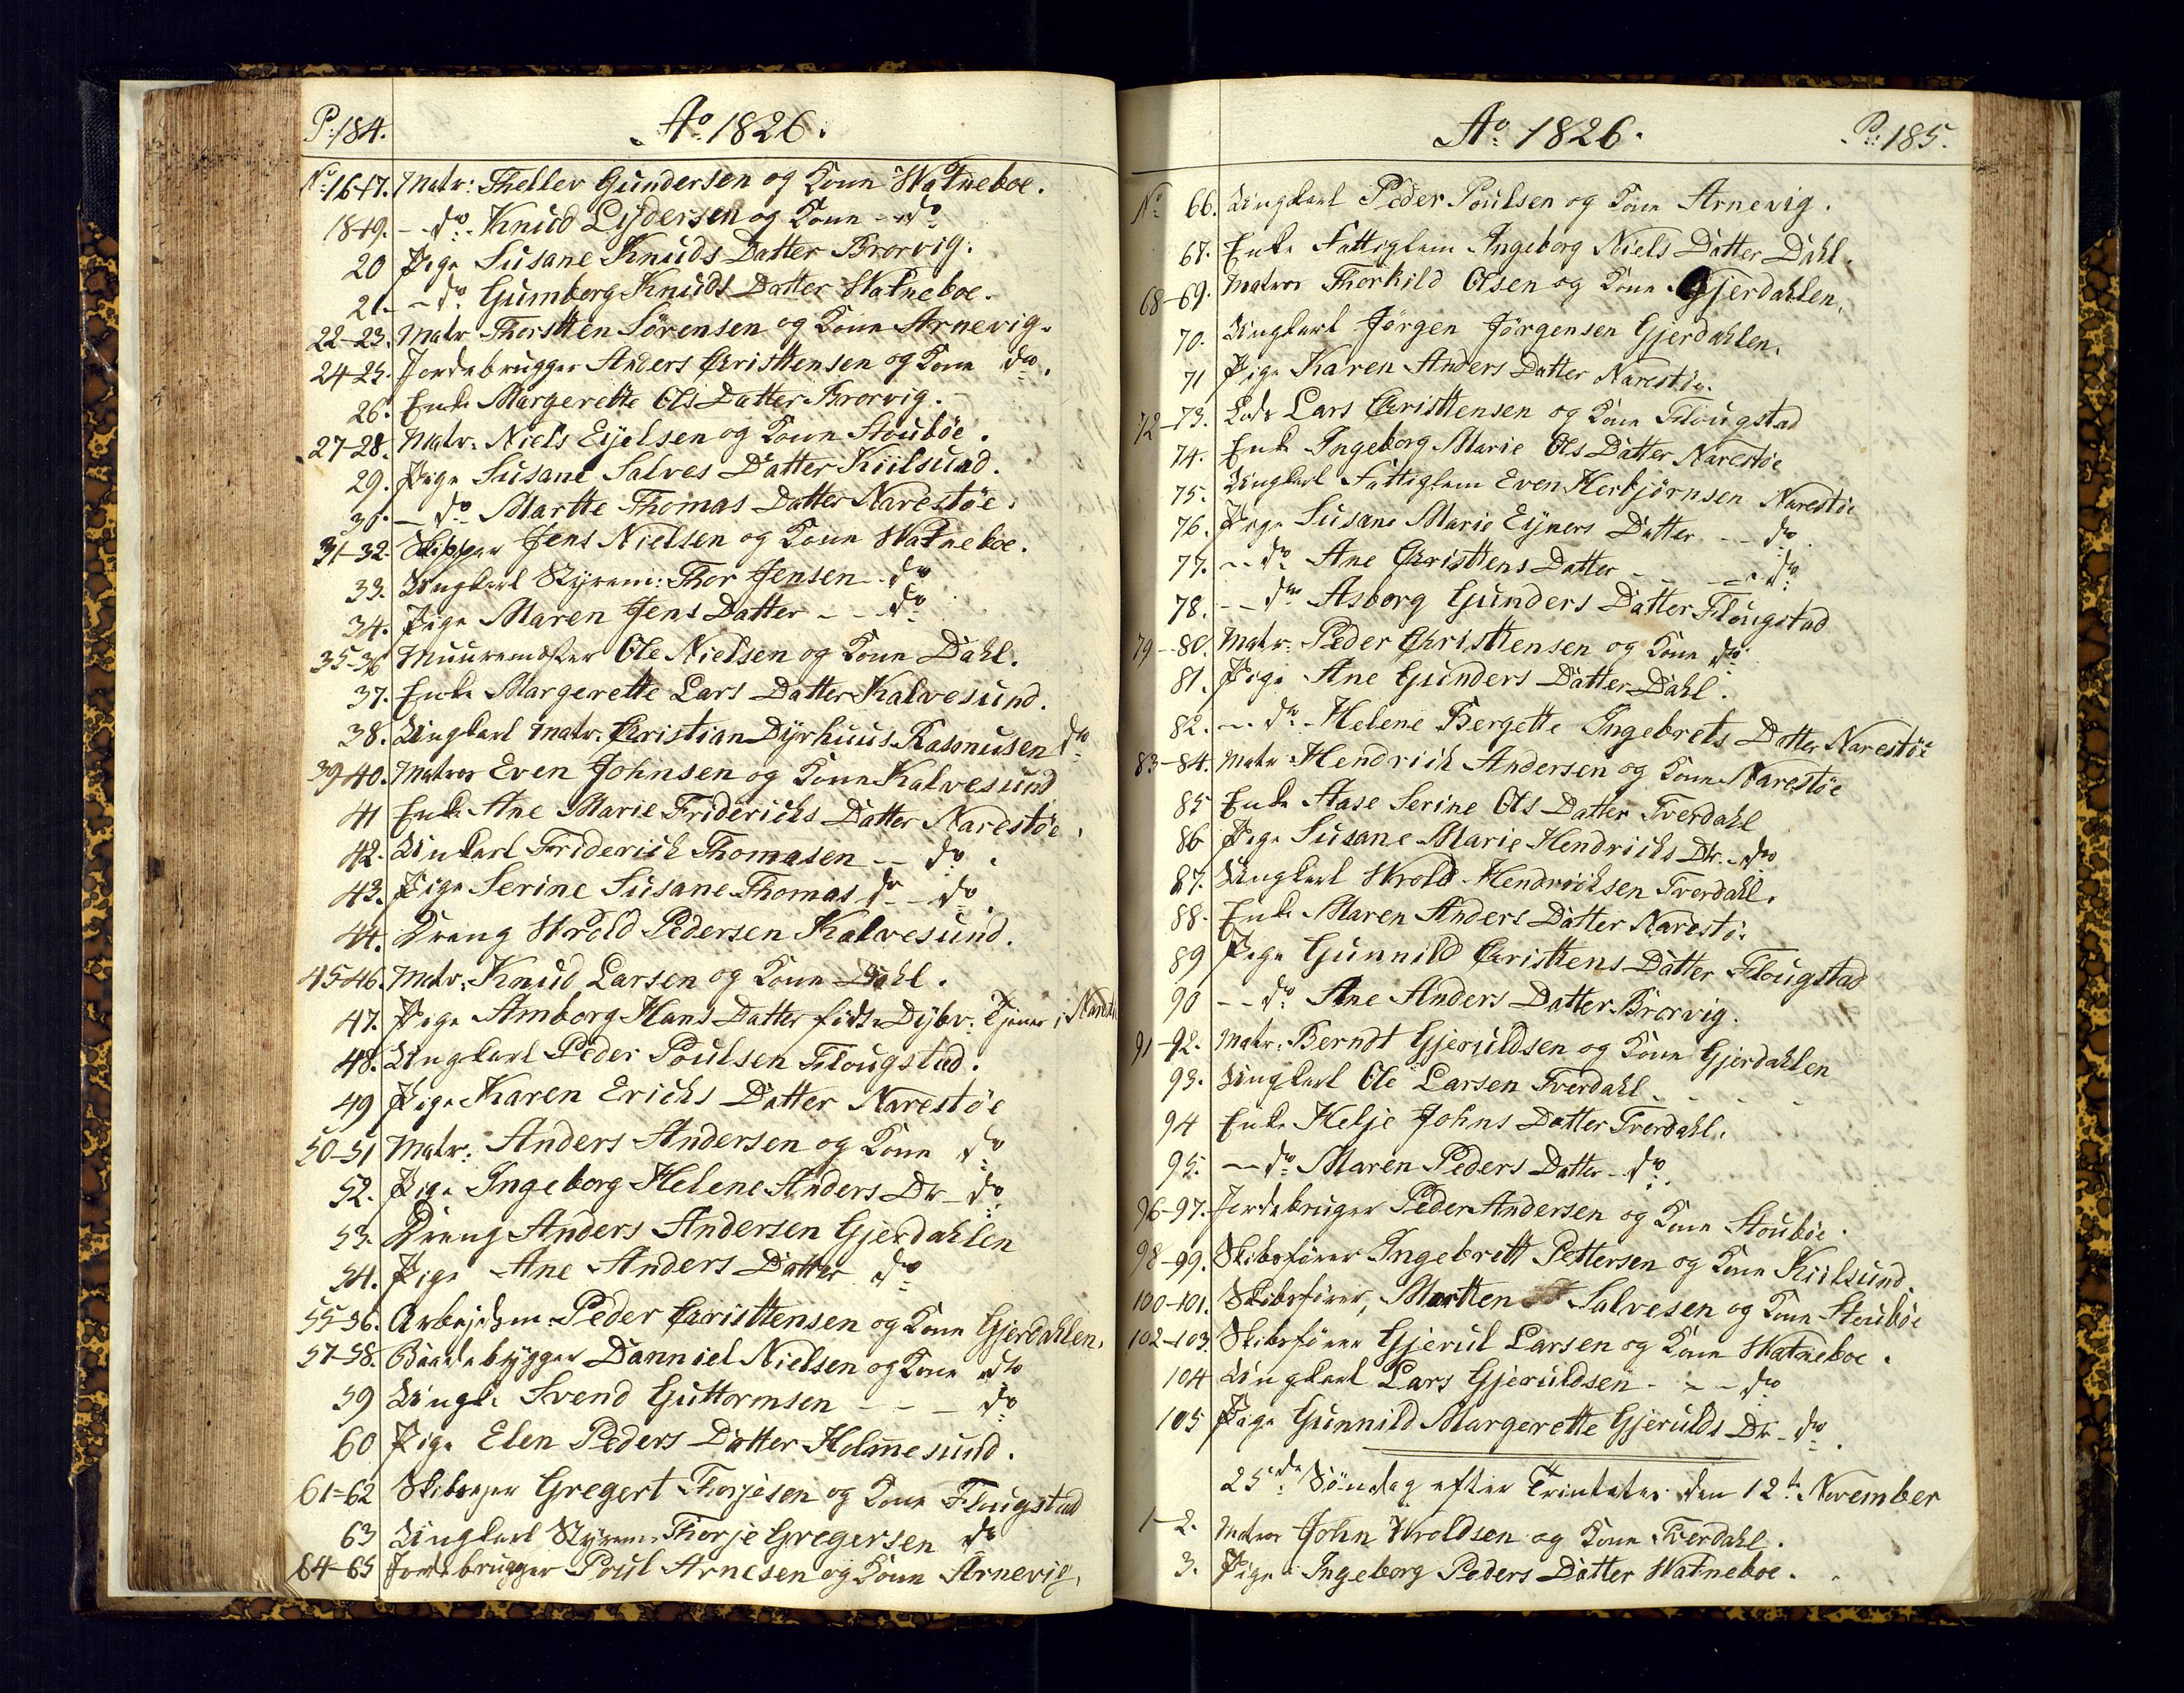 P: 184.
Ao 1826.
No 16-17. Matr: Theller Gundersen og Kone Watneboe.
18-19. - do - Knud Lydersen og Kone - do
20 Pige Susane Knuds Datter Brorvig.
21. - do Gumborg Knuds Datter Watneboe.
22-23. Matr Thorsten Sörensen og Kone Arnevig.
24-25. Jordebrugger Anders Christensen og Kone do.
26. Enke Margerette Ols Datter Brorvig.
27-28. Matr: Niels Eyelsen og Kone Stouböe.
29. Pige Susane Salves Datter Kiilsund.
30. - do Martte Thomas Datter Narestöe.
31-32. Skipper Jens Nielsen og Kone Watneboe.
33. Ungkarl Styrem: Thor Jensen - do
34. Pige Maren Jens Datter - - do
35-36 Muuremäster Ole Nielsen og Kone Dahl.
37. Enke Margerette Lars Datter Kalvesund.
38. Ungkarl Matr: Christian Dyrhuus Rasmusen do
39-40. Matros Even Johnsen og Kone Kalvesund
41 Enke Ane Marie Friderichs Datter Narestöe.
42. Unkarl Friderich Thomasen - - do.
43. Pige Serine Susane Thomas dr - do.
44. Dreng Wrold Pedersen Kalvesund.
45-46. Matr: Knud Larsen og Kone Dahl.
47. Pige Amborg Hans Datter föds Dybv: tjener i Narestö
48. Ungkarl Peder Poulsen Flougstad.
49 Pige Karen Erichs Datter Narestöe
50-51 Matr: Anders Andersen og Kone do
52. Pige Ingeborg Helene Anders Dr - do.
53. Dreng Anders Andersen Gjerdahlen
54. Pige Ane Anders Datter do
55-56. Arbejdsm: Peder Christtensen og Kone Gjerdahlen.
57-58. Baadebygger Danniel Nielsen og Kone do
59 Ungk: Svend Guttormsen - - - do
60 Pige Elen Peders Datter Holmesund.
61-62 Skibseyer Gregert Thorjesen og Kone Flougstad
63 Ungkarl Styrem: Thorje Gregersen do
64-65 Jordebrugger Poul Arnesen og Kone Arnevig.
Ao 1826.
P: 185.
No 66. Ungkarl Peder Poulsen og Kone Arnevig.
67. Enke Fattiglem Ingeborg Niels Datter Dahl.
68-69. Matros Thorkild Olsen og Kone Gjerdahlen.
70. Ungkarl Jörgen Jörgensen Gjerdahlen.
71 Pige Karen Anders Datter Narestöe.
72-73. Lods Lars Christtensen og Kone Flougstad
74. Enke Ingeborg Marie Ols Datter Narestöe
75. Ungkarl Fattiglem Even Herbjörnsen Narestöe
76. Pige Susane Marie Eyners Datter - - do.
77. - - do Ane Christtens Datter - - - do
78. - - do Asborg Gunders Datter Flougstad
79-80. Matr: Peder Christtensen og Kone do
81. Pige Ane Gunders Datter Dahl.
82. - - do - Helene Bergette Ingebrets Datter Narestöe
83-84. Matr Hendrich Andersen og Kone Narestöe
85 Enke Aase Serine Ols Datter Tverdahl
86 Pige Susane Marie Hendrichs Dr - do
87. Ungkarl Wrold Hendrichsen Tverdahl.
88. Enke Maren Anders Datter Narestö:
89 Pige Gunnild Christtens Datter Flougstad
90 - - do Ane Anders Datter Brorvig.
91-92. Matr: Berndt Gjeruldsen og Kone Gjerdahlen
93. Ungkarl Ole Larsen Tverdahl
94 Enke Helje Johns Datter Tverdahl.
95. - do Maren Peders Datter - do.
96-97. Jordebruger Peder Andersen og Kone Stouböe.
98-99. Skibsförer Ingebrett Pettersen og Kone Kiilsund.
100-101. Skibsförer, Mortten Salvesen og Kone Stouböe
102-103. Skibsförer Gjerul Larsen og Kone Watneboe.
104 Ungkarl Lars Gjeruldsen - - - do
105 Pige Gunnild Margerette Gjerulds Dr - do.
25de Söndag efter Trinitates den 12te November
1-2. Matros John Wroldsen og Kone Tverdahl.
3. Pige Ingeborg Peders Datter Watneboe.